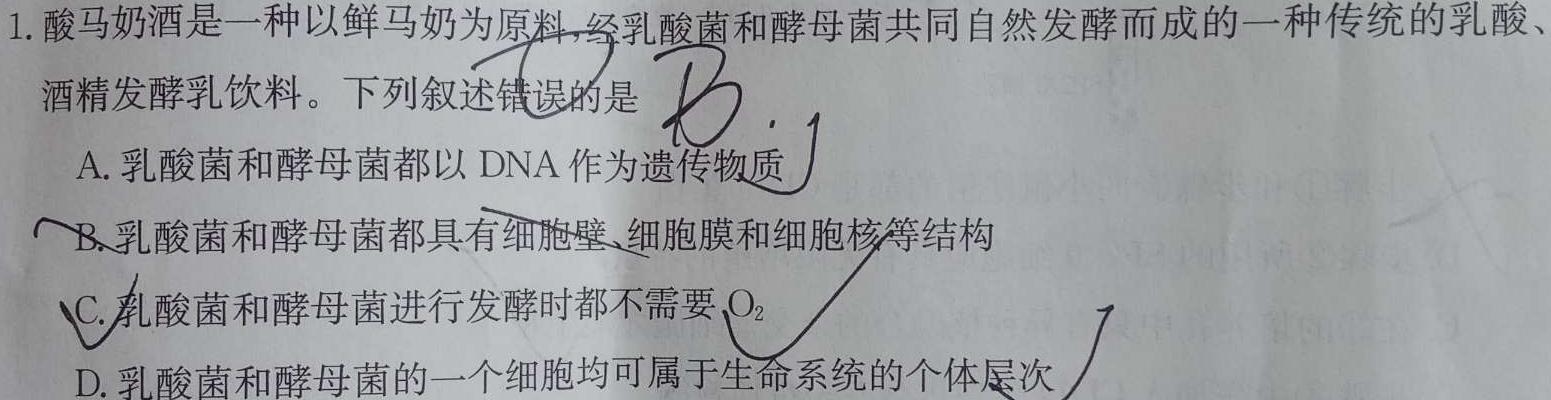 1. 酸马奶酒是一种以鲜马奶为原料,经乳酸菌和酵母菌共同自然发酵而成的一种传统的乳酸、
酒精发酵乳饮料。下列叙述错误的是 B.
A. 乳酸菌和酵母菌都以 DNA 作为遗传物质
B. 乳酸菌和酵母菌都具有细胞壁、细胞膜和细胞核等结构
C. 乳酸菌和酵母菌进行发酵时都不需要 O₂
D. 乳酸菌和酵母菌的一个细胞均可属于生命系统的个体层次